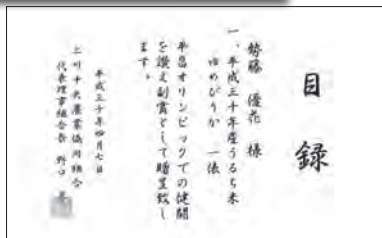 目録
勢藤 優花 様
一、平成三十年産うるち米
ゆめぴりか 一俵
平昌オリンピックでの健闘
を讃え副賞として贈呈致し
ます。
平成三十年四月七日
上川中央農業協同組合
代表理事組合長 野口